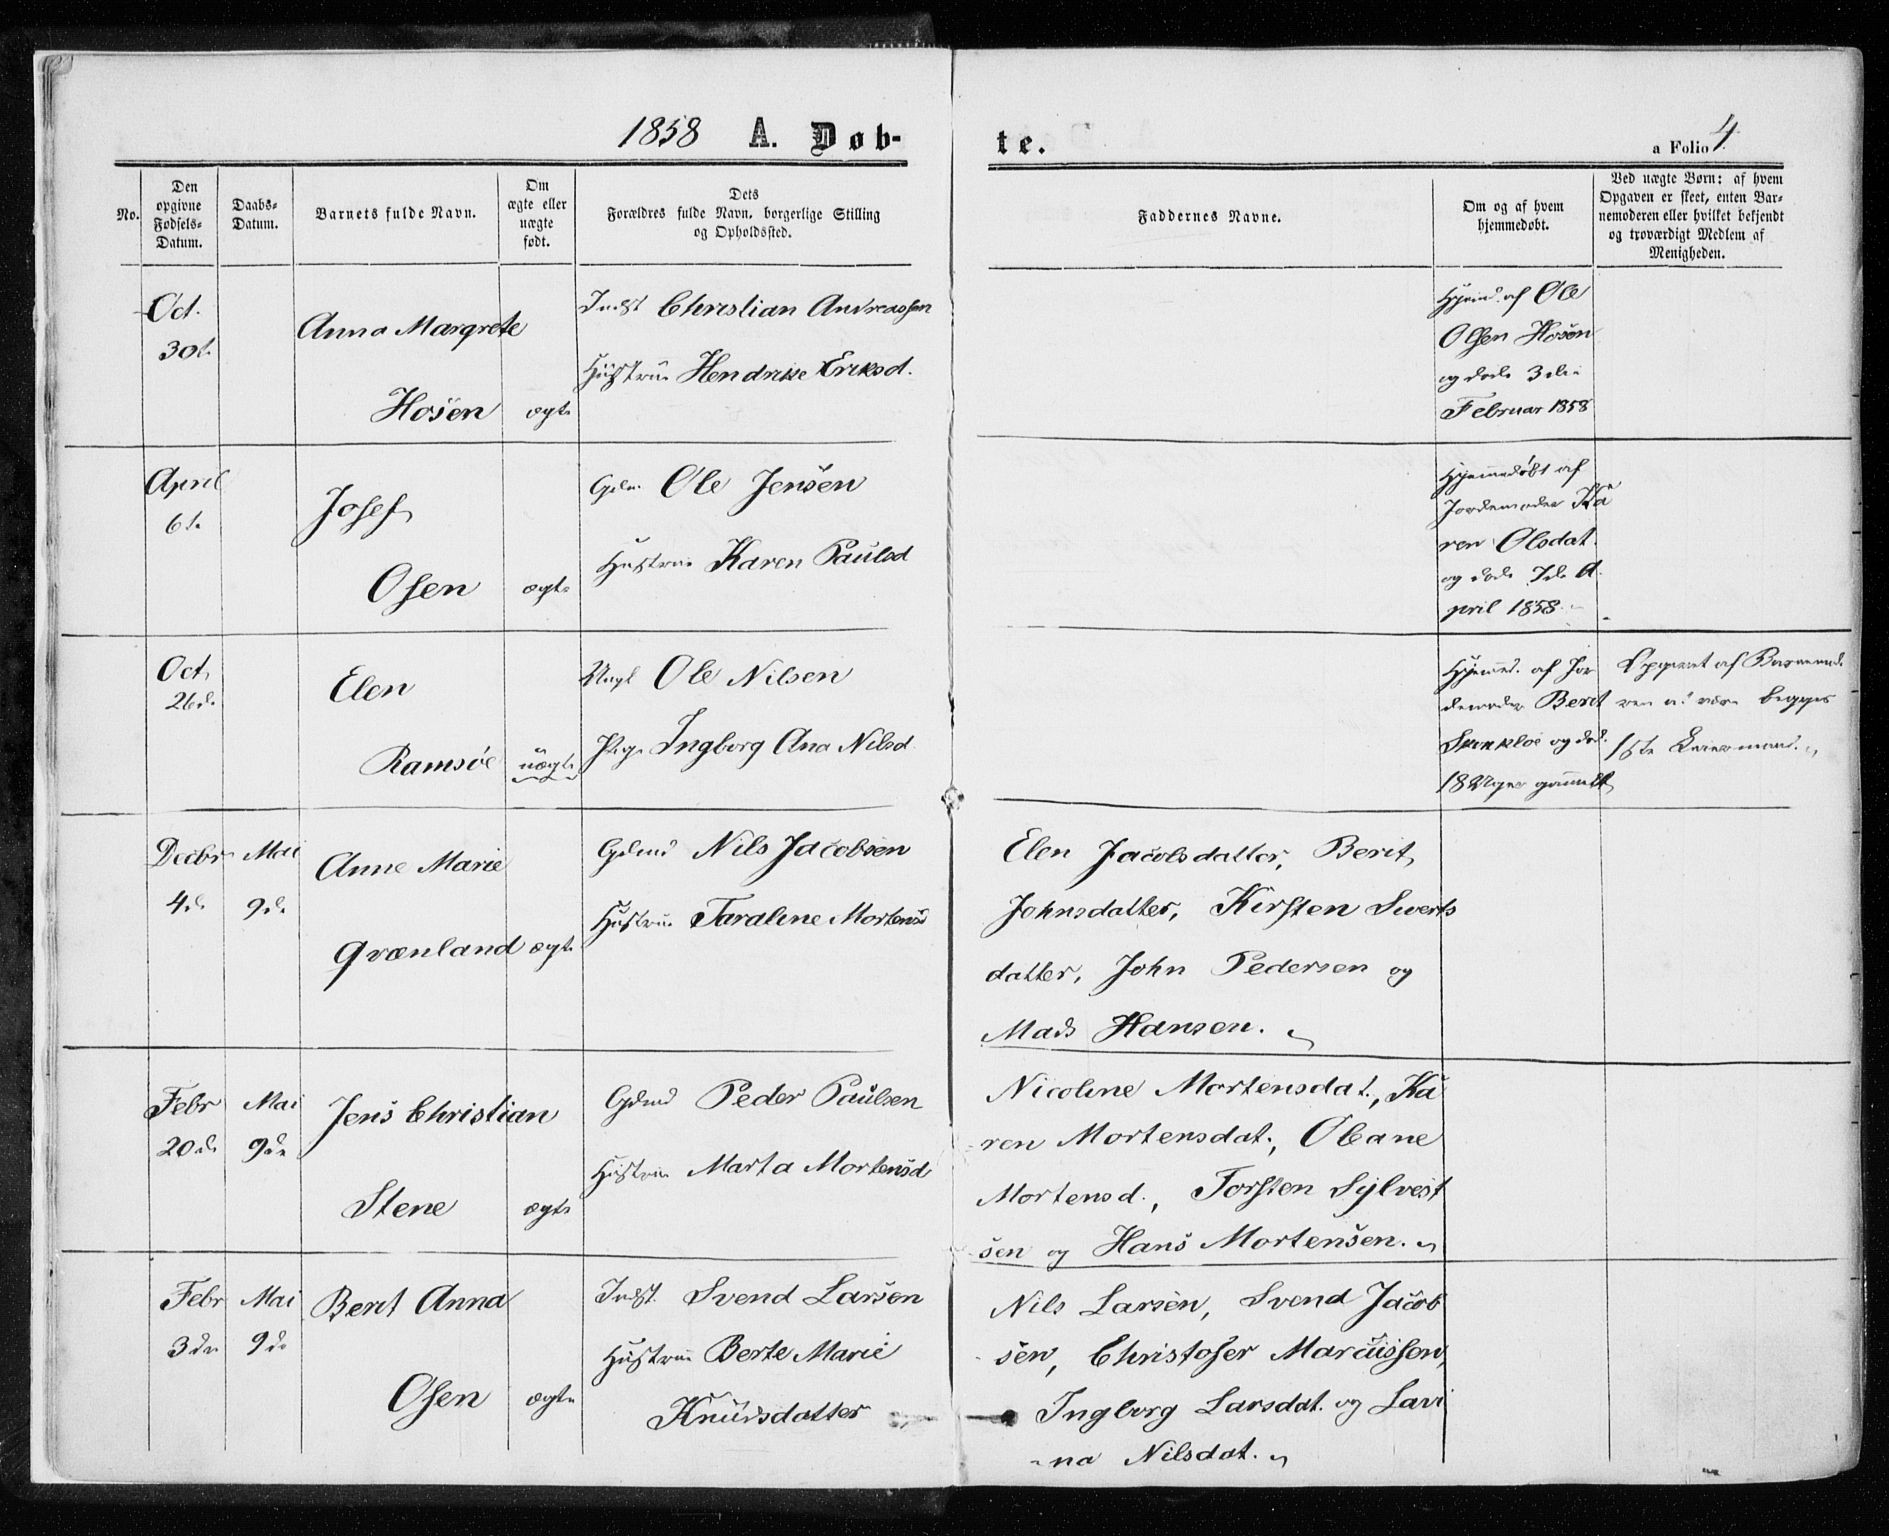 1858 A. Døb-
te. a Folio 4.
No.
Den
opgivne
Fødsels-
Datum.
Daabs-
Datum.
Barnets fulde Navn.
Om
ægte eller
uægte
født.
Dets
Forældres fulde Navn, borgerlige Stilling
og Opholdssted.
Faddernes Navne.
Om og af hvem
hjemmedøbt.
Ved uægte Børn: af hvem
Opgaven er skeet, enten Bar-
nemoderen eller hvilket bekjendt
og troværdigt Medlem af
Menigheden.
Oct.
30t.
Anna Margrete
Hosen
ægte
Indst Christian Andreassen
Hustrue Hendrikke Eriksd.
Hjemd. af Ole
Olsen Hosen
og døde 3die
Februar 1858
April
6t.
Josef
Osen
ægte
Gdm. Ole Jensen
Hustrue Karen Paulsd
Hjemmedøbt af
Jordemoder Ka
ren Olsdat.
og døde 7de A
pril 1858.
Oct.
26d.
Elen
Ramsøe
uægte
Ungk Ole Nilsen
Pige Ingborg Ana Nilsd.
Hjemmed. af Jor
demoder Berit
og død.
18 Uger gammelt
Opgivet af Barnemode
ren at være begges
1ste Leiermaal.
Decbr
4de
Mai
9de
Anne Marie
Grænland
ægte
Gdmd Nils Jacobsen
Hustrue Taraline Mortensd
Elen Jacobsdatter, Berit
Johnsdatter, Kirsten Siverts
datter, John Pedersen og
Mads Hansen.
Febr
20de
Mai
9de
Jens Christian
Stene
ægte
Gdmd Peder Paulsen
Hustrue Marta Mortensd
Nicoline Mortensdat., Ka
ren Mortensdat., Oleane
Mortensd., Torsten Sylvest
sen og Hans Mortensen.
Febr
3de
Mai
9de
Berit Anna
Osen
ægte
Indst. Svend Larsen
Hustrue Berte Marie
Knudsdatter
Nils Larsen, Svend Jacob
sen, Christofer Marcussen,
Ingborg Larsdat. og Lavi
na Nilsdat.